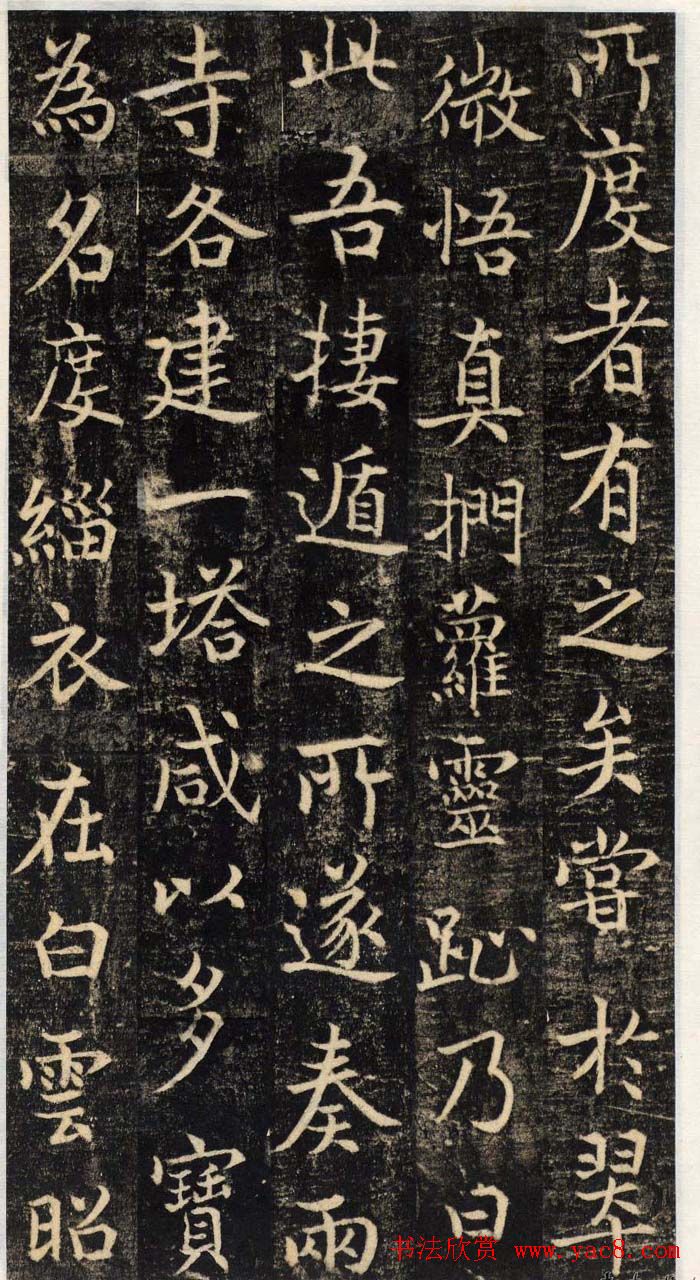 所度者有之矣嘗於翠
微悟真捫蘿靈趾乃曰
此吾捿遁之所遂奏兩
寺各建一塔咸以多寶
為名度緇衣在白雲昭
书法欣赏 www.yac8.com